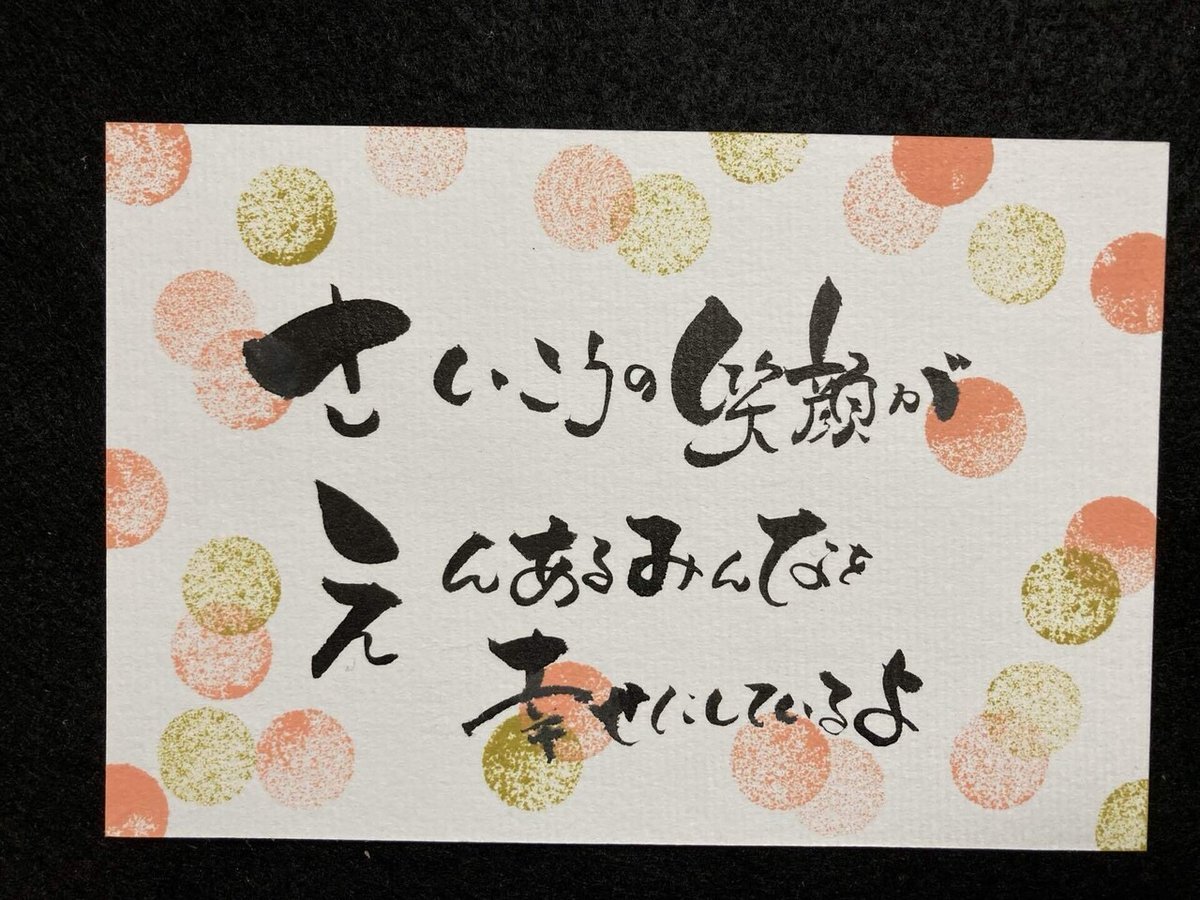 さいこうの笑顔が
えんあるみんなを
幸せにしているよ